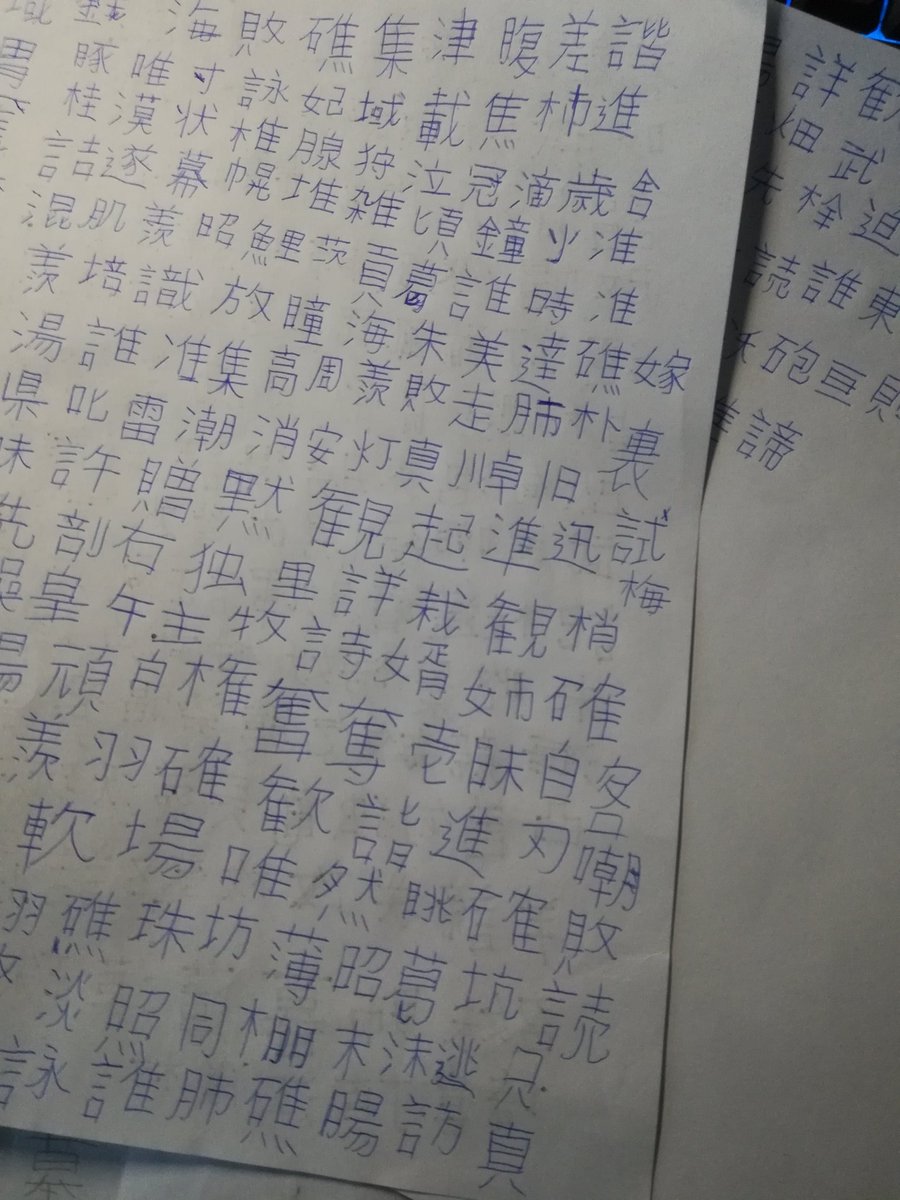 域 海 敗 礁 集 津 腹 差 諧
豚 唯 寸 詠 妃 域 載 焦 柿 進
桂 漠 状 椎 腺 狩 泣 冠 滴 歳 舎
詰 遂 幕 幌 堆 雑 頃 鐘 少 准
混 肌 羨 昭 鯉 茨 貢 葛 誰 時 准
羨 培 識 放 瞳 海 朱 美 達 礁 嫁
湯 誰 准 集 高 周 羨 敗 走 肺 朴 裏
県 叱 雷 潮 消 安 灯 真 川 卓 旧
昧 許 贈 黙 観 起 準 迅 試
先 剖 右 独 里 詳 栽 観 梢 梅
皇 午 主 牧 詩 婿 姉 確
湯 頑 自 権 奮 奪 壱 昧 自
羨 羽 確 歓 諧 進 刃 嘲
軟 場 唯 然 眺 確 敗
羽 礁 珠 坊 薄 昭 葛 坑 読
淡 照 同 棚 末 沫 逃 只
詠 誰 肺 礁 腸 訪 真
詳 観
畑 武
先 栓 迫
読 誰 東
沃 砲 巨 則
諦
墓